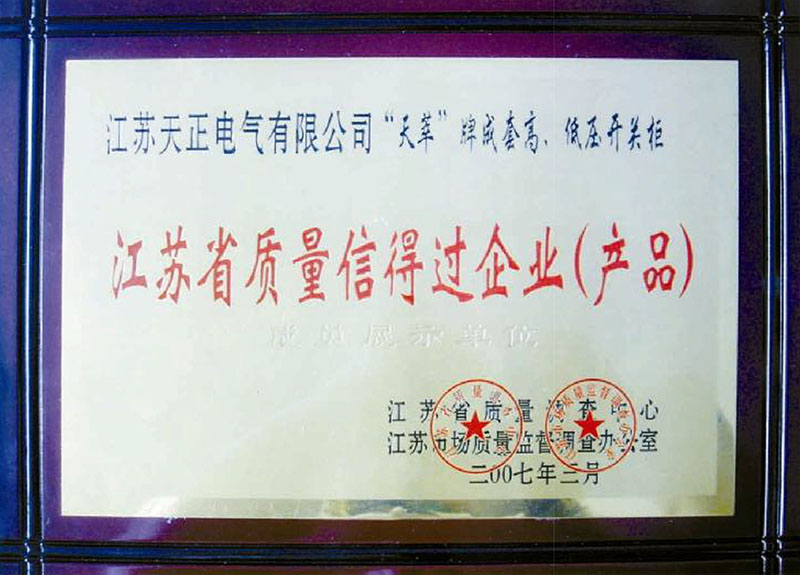 江苏天正电气有限公司“天萃”牌成套高、低压开关柜
江苏省质量信得过企业(产品)
质量展示单位
江苏省质量调查中心
江苏市场质量监督调查办公室
二00七年三月